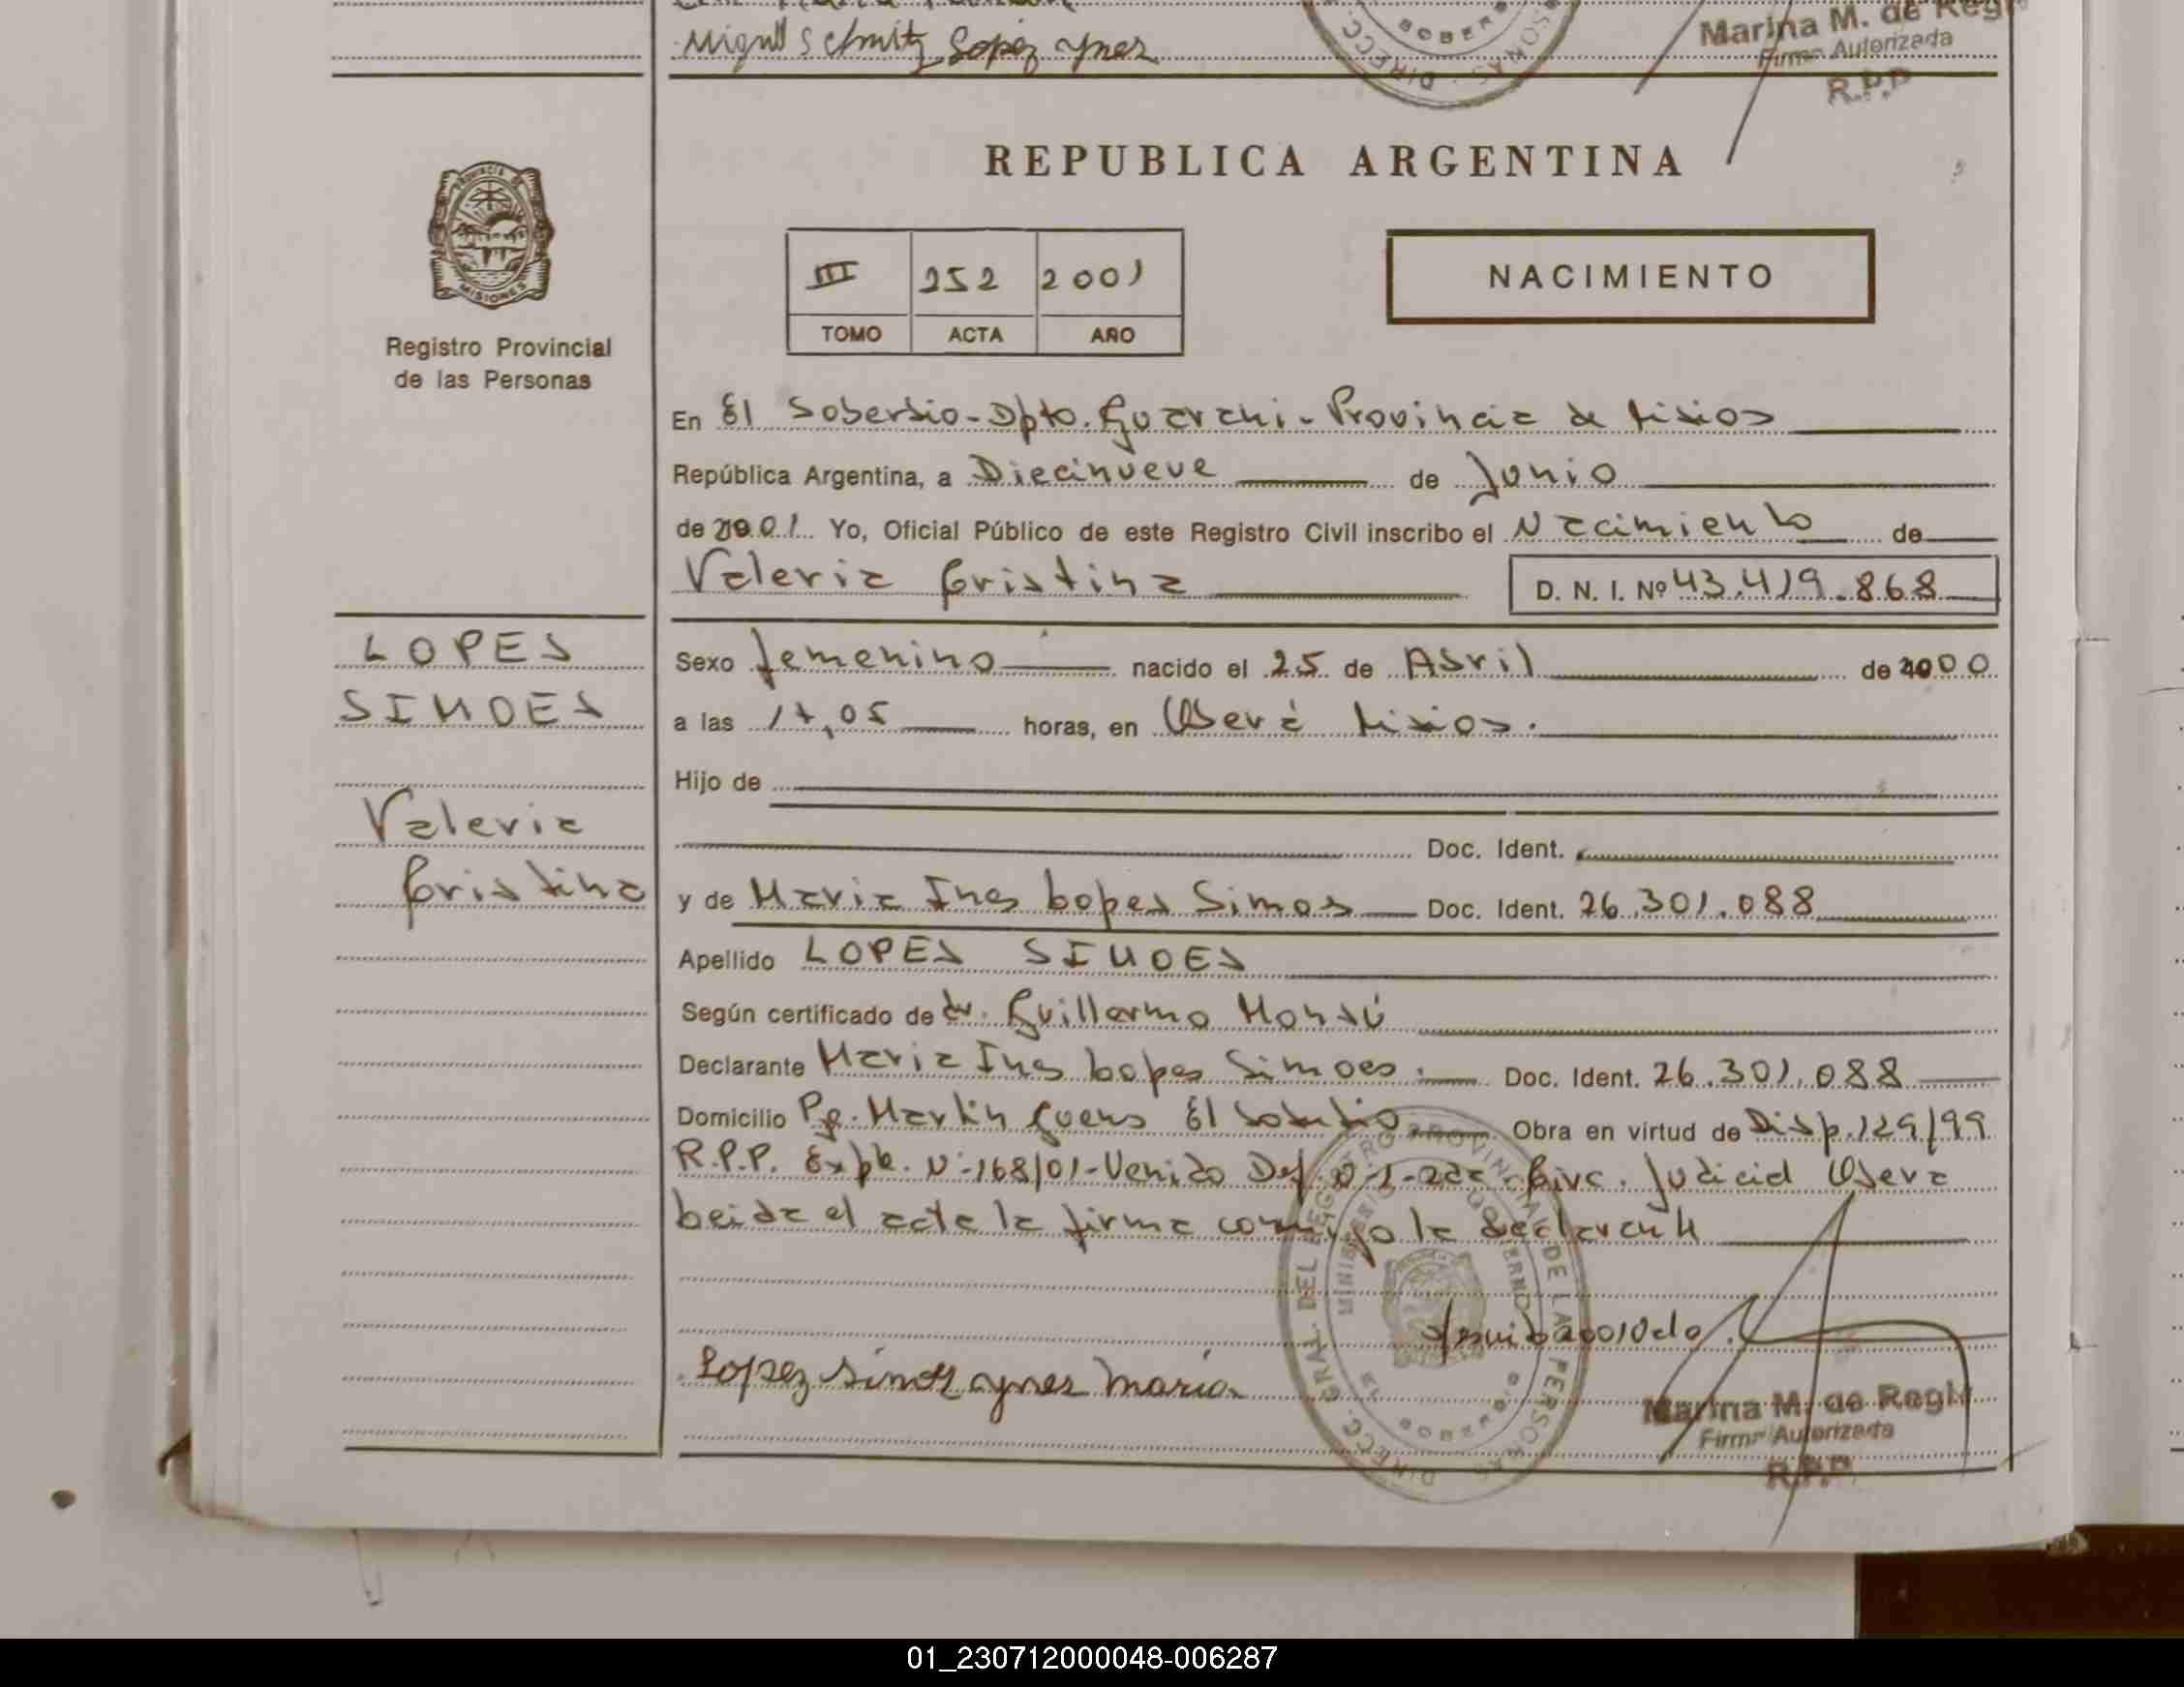 Miguel Schmitz Lopez ynes
Marina M. de Regi
Firma Autorizada
R.P.P
REPUBLICA ARGENTINA
PROVINCIA DE
MISIONES
Registro Provincial
de las Personas
III 252 2001
TOMO ACTA AÑO
NACIMIENTO
En El Soberbio - Dpto. Guarani - Provincia de Misios
República Argentina, a Diecinueve de Junio
de 2001 Yo, Oficial Público de este Registro Civil inscribo el Nacimiento de
Valeria Cristina D. N. I. Nº 43.419.868
LOPES
SIMOES
Valeria
Cristina
Sexo femenino nacido el 25 de Abril de 2000
a las 17,05 horas, en Oberá Misios.
Hijo de
Doc. Ident.
y de Maria Ines Lopes Simos Doc. Ident. 26.301.088
Apellido LOPES SIMOES
Según certificado de dr. Guillermo Monsú
Declarante Maria Ines Lopes Simoes. Doc. Ident. 26.301.088
Domicilio Pje. Martin Guems El Soberbio Obra en virtud de Disp. 129/99
R.P.P. Expte. Nº 168/01 - Venido Def. Nº 1 - 2da Circ. Judicial Obera
Leida el acta la firma conmigo la declarante
DIRECC. GRAL. DEL REGISTRO PROVINCIAL DE LAS PERSONAS
Lopez Simoes ynes maria
Marina M. de Regi
Firma Autorizada
R.P.P
01_230712000048-006287